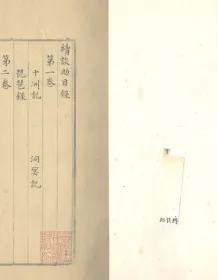 續談助目錄
第一卷
十洲記 洞冥記
琵琶錄
第二卷